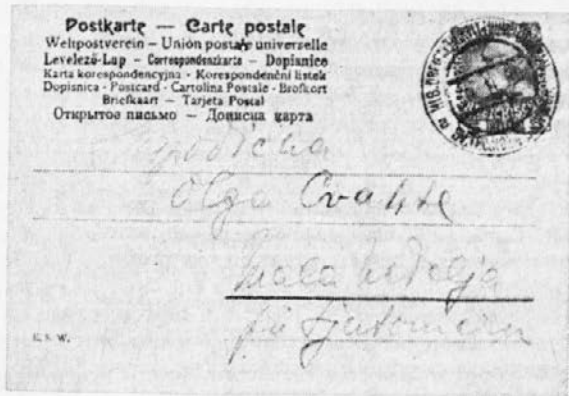 Postkarte — Carte postale
Weltpostverein – Union postale universelle
Levelező-Lap – Correspondenzkarte – Dopisnice
Karta korespondencyjna - Korespondenční lístek
Dopisnica - Postcard - Cartolina Postale - Brefkort
Briefkaart — Tarjeta Postal
Открытое письмо — Дописна карта
Olga Cvahte
Mala nedelja
pri Ljutomeru